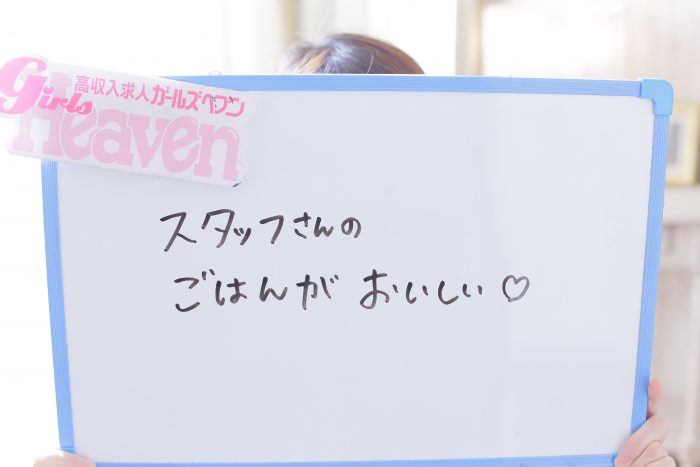 高収入求人ガールズヘブン
Girls
Heaven
スタッフさんの
ごはんが おいしい♡